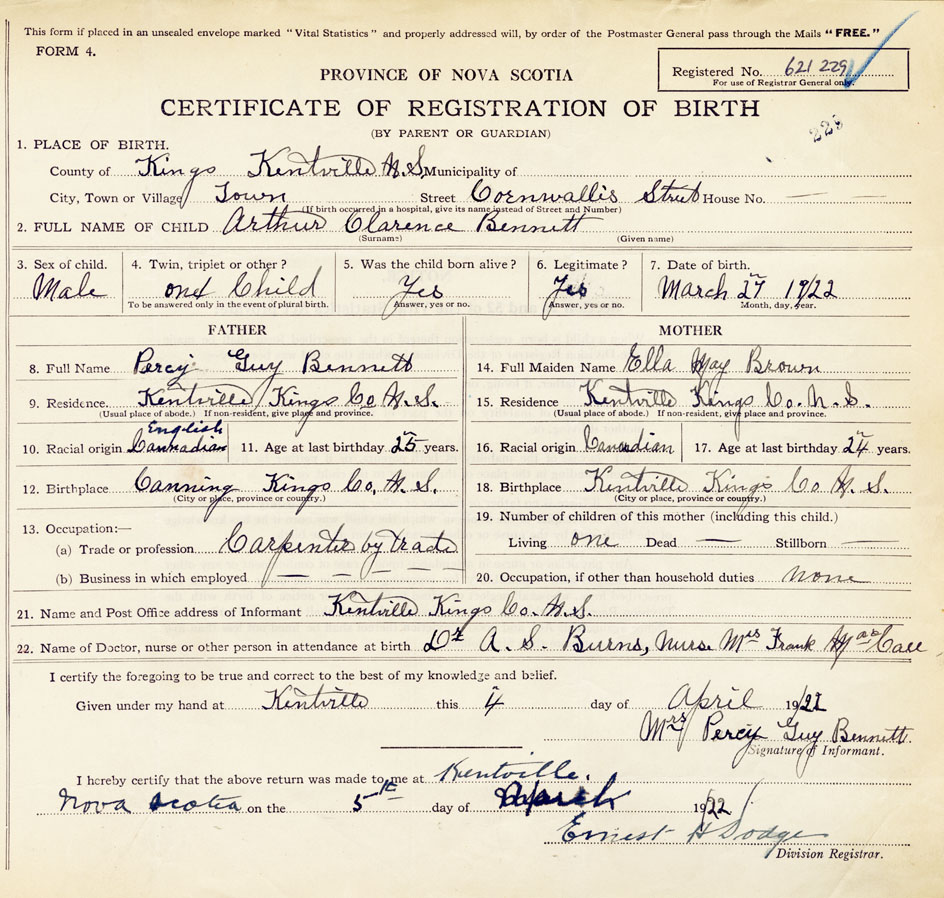 This form if placed in an unsealed envelope marked "Vital Statistics" and properly addressed will, by order of the Postmaster General pass through the Mails "FREE."
FORM 4.
Registered No. 621 229
For use of Registrar General only.
PROVINCE OF NOVA SCOTIA
CERTIFICATE OF REGISTRATION OF BIRTH
(BY PARENT OR GUARDIAN)
229
1. PLACE OF BIRTH.
County of Kings Kentville N.S. Municipality of
City, Town or Village Town Street Cornwallis Street House No. —
(If birth occurred in a hospital, give its name instead of Street and Number)
2. FULL NAME OF CHILD Arthur Clarence Bennett
(Surname) (Given name)
3. Sex of child. 4. Twin, triplet or other? 5. Was the child born alive? 6. Legitimate? 7. Date of birth.
Male one Child Yes Yes March 27 1922
To be answered only in the event of plural birth. Answer, yes or no. Answer, yes or no. Month, day, year.
FATHER MOTHER
8. Full Name Percy Guy Bennett 14. Full Maiden Name Ella May Brown
9. Residence. Kentville Kings Co N.S. 15. Residence Kentville Kings Co. N.S.
(Usual place of abode.) If non-resident, give place and province. (Usual place of abode.) If non-resident, give place and province.
English
10. Racial origin Cannadian 11. Age at last birthday 25 years. 16. Racial origin Canadian 17. Age at last birthday 24 years.
12. Birthplace Canning Kings Co, N.S. 18. Birthplace Kentville Kings Co N.S.
(City or place, province or country.) (City or place, province or country.)
13. Occupation:— 19. Number of children of this mother (including this child.)
(a) Trade or profession Carpenter by trade Living one Dead — Stillborn —
(b) Business in which employed — — — — — 20. Occupation, if other than household duties none
21. Name and Post Office address of Informant Kentville Kings Co. N.S.
22. Name of Doctor, nurse or other person in attendance at birth Dr A. S. Burns, Nurse Mrs Frank
I certify the foregoing to be true and correct to the best of my knowledge and belief.
Given under my hand at Kentville this 4 day of April 1922
Mrs Percy Guy Bennett.
Signature of Informant.
I hereby certify that the above return was made to me at Kentville.
Nova Scotia on the 5th day of 1922
Ernest H Dodge
Division Registrar.